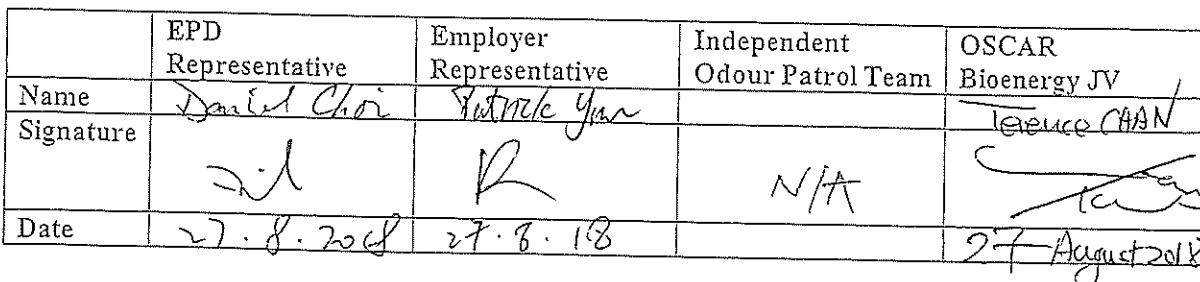 EPD Representative | Employer Representative | Independent Odour Patrol Team | OSCAR Bioenergy JV
Name | Daniel Choi | Patrick | Terence CHAN
Signature | N/A
Date | 27.8.2018 | 27.8.18 | 27 August 2018